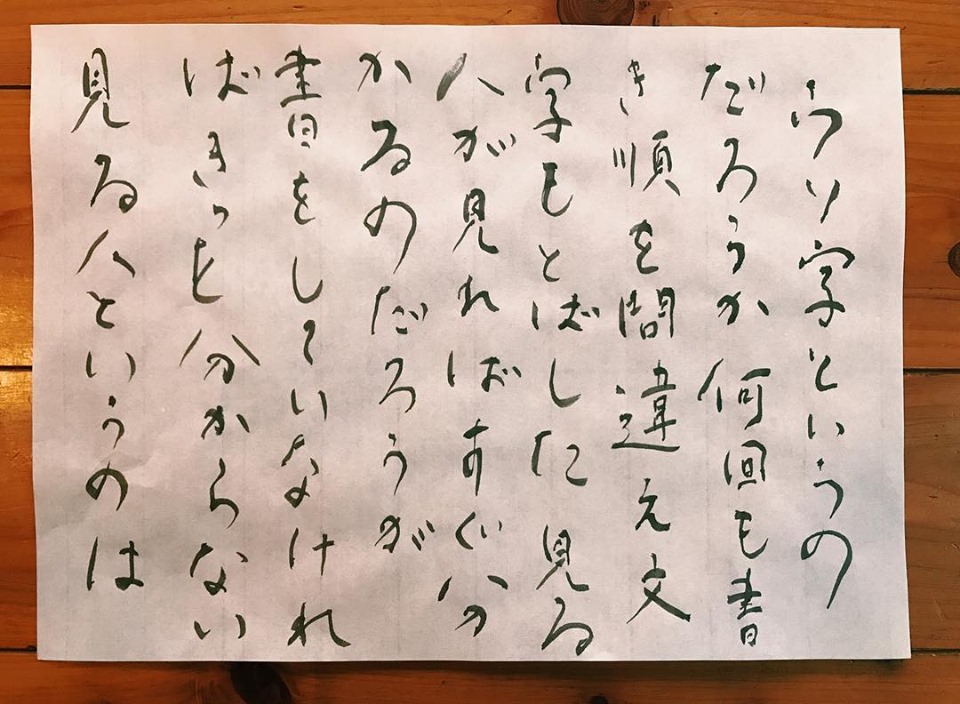 うソ字というの
だろうか何回も書
き順を間違え文
字もとばした 見る
人が見ればすぐ分
かるのだろうが
書をしていなけれ
ばきっと分からない
見る人というのは